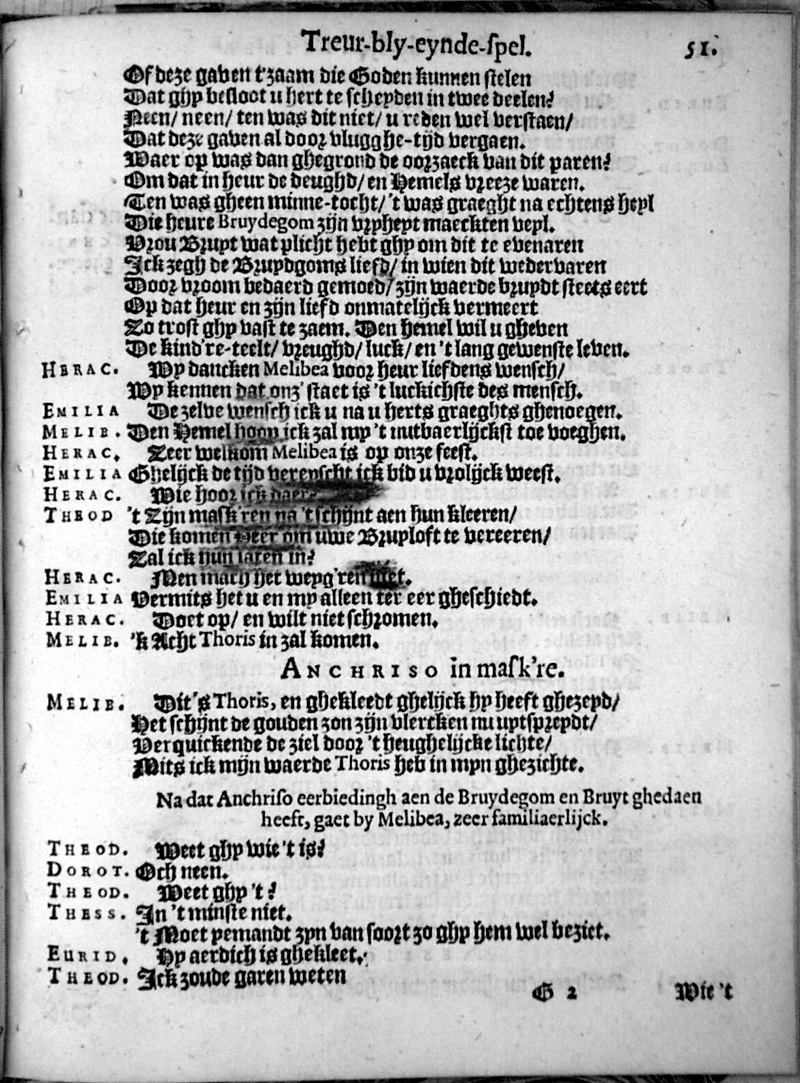 Treur-bly-eynde-spel. 51.
Of deze gaven t'zaam die Goden kunnen stelen
Dat ghy besloot u hert te scheyden in twee deelen?
Neen/ neen/ ten was dit niet/ u reden wel verstaen/
Dat deze gaven al door vlugghe-tijd vergaen.
Waer op was dan ghegrond de oorzaeck van dit paren?
Om dat in heur de deughd/ en Hemels vreeze waren.
Ten was gheen minne-tocht/ 't was graeght na echtens heyl
Die heure Bruydegom zijn vryheyt maeckten veyl.
Vrou Bruyt wat plicht hebt ghy om dit te evenaren
Ick zegh de Bruydgoms liefd/ in wien dit wedervaren
Door vroom bedaerd gemoed/ zijn waerde bruydt steets eert
Op dat heur en zijn liefd onmatelijck vermeert
Zo trost ghy vast te zaem. Den hemel wil u gheven
De kind're-teelt/ vreughd/ luck/ en 't lang gewenste leven.
HERAC. Wy dancken Melibea voor heur liefdens wensch/
Wy kennen dat onz' staet is 't luckichste des mensch.
EMILIA De zelve wensch ick u na u herts graeghts ghenoegen.
MELIB. Den Hemel hoop ick zal my 't nutbaerlijckst toe voeghen.
HERAC. Zeer welkom Melibea is op onze feest.
EMILIA Ghelijck de tijd vereyscht ick bid u vrolijck weest.
HERAC. Wie hoor ick daer
THEOD 't Zijn mask'ren na 't schijnt aen hun kleeren/
Die komen heer om uwe Bruyloft te vereeren/
Zal ick hun laten in?
HERAC. Men mach het weyg'ren niet.
EMILIA Vermits het u en my alleen ter eer gheschiedt.
HERAC. Doet op/ en wilt niet schromen.
MELIB. 'k Acht Thoris in zal komen.
ANCHRISO in mask're.
MELIB. Dit's Thoris, en ghekleedt ghelijck hy heeft ghezeyd/
Het schijnt de gouden zon zijn vlercken nu uytspreydt/
Verquickende de ziel door 't heughelijcke lichte/
Mits ick mijn waerde Thoris heb in myn ghezichte.
Na dat Anchriso eerbiedingh aen de Bruydegom en Bruyt ghedaen
heeft, gaet by Melibea, zeer familiaerlijck.
THEOD. Weet ghy wie 't is?
DOROT. Och neen.
THEOD. Weet ghy 't?
THESS. In 't minste niet.
't Moet yemandt zyn van soort zo ghy hem wel beziet.
EURID. Hy aerdich is ghekleet.
THEOD. Ick zoude garen weten
G 2 Wie 't